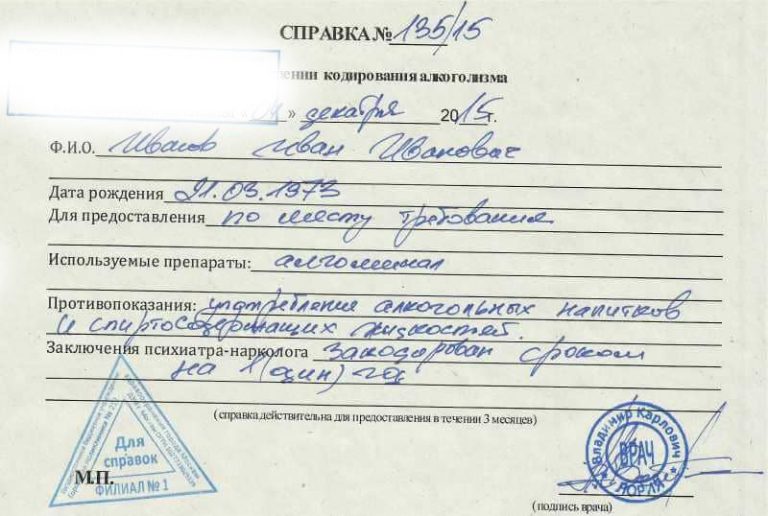 СПРАВКА № 135/15
ении кодирования алкоголизма
« 01 » декабря 2015 г.
Ф.И.О. Иванов Иван Иванович
Дата рождения 21.03.1973
Для предоставления по месту требования
Используемые препараты: алгоминал
Противопоказания: употребление алкогольных напитков
и спиртосодержащих жидкостей.
Заключения психиатра-нарколога Закодирован сроком
на 1 (один) год
(справка действительна для предоставления в течении 3 месяцев)
Для
справок
ФИЛИАЛ № 1
М.П.
Владимир Карлович
ВРАЧ
(подпись врача)